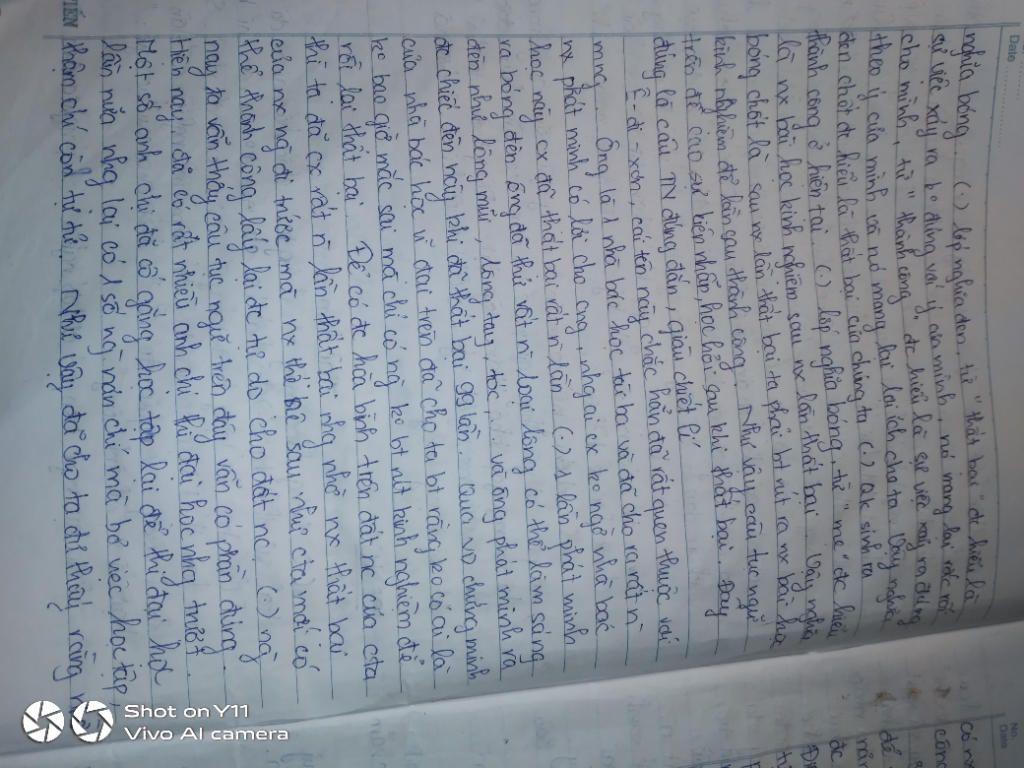 Date
nghĩa bóng. (.) lớp nghĩa đen, từ "thất bại" đc hiểu là
sự việc xảy ra ko đúng với ý của mình, nó mang lại rắc rối
cho mình, từ "thành công" đc hiểu là sự việc xảy ra đúng
theo ý của mình và nó mang lại lợi ích cho ta. Vậy nghĩa
đen chốt đc hiểu là thất bại của chúng ta (.) qk sinh ra
thành công ở hiện tại. (.) lớp nghĩa bóng, từ "mẹ" đc hiểu
là nx bài học kinh nghiệm sau nx lần thất bại. Vậy nghĩa
bóng chốt là sau nx lần thất bại ta phải bt rút ra nx bài học
kinh nghiệm để lần sau thành công. Như vậy câu tục ngữ
trên đề cao sự bền nhẫn, học hỏi sau khi thất bại. Đây
đúng là câu TN đúng đắn, giàu chiết lí
Ê-đi-xơn, cái tên này chắc hẳn đã rất quen thuộc với
mng. Ông là 1 nhà bác học tài ba và đã cho ra rất n`
nx phát minh có lợi cho mng, nhg ai cx ko ngờ nhà bác
học này cx đã thất bại rất n` lần. (.) 1 lần phát minh
ra bóng đèn ông đã thử rất n` loại lông có thể làm sáng
đèn như lông mũi, lông tay, tóc, và ông phát minh ra
đc chiếc đèn này khi đã thất bại 99 lần. Qua vd chứng minh
của nhà bác học vĩ đại trên đã cho ta bt rằng ko có ai là
ko bao giờ mắc sai mà chỉ có ng ko bt rút kinh nghiệm để
rồi lại thất bại. Để có đc hòa bình trên đất nc của cta
thì ta đã cx rất n` lần thất bại nhg nhờ nx thất bại
của nx ng đi trước mà nx thế hệ sau như cta mới có
thể thành công lấy lại đc tự do cho đất nc. (.) ngày
nay ta vẫn thấy câu tục ngữ trên đây vẫn có phần đúng.
Hiện nay đã có rất nhiều anh chị thi đại học nhg trượt.
Một số anh chị đã cố gắng học tập lại để thi đại học
lần nữa nhg lại có 1 số ng nản chí mà bỏ việc học tập
thậm chí còn tự tử. Như vậy đã cho ta đã thấy rằng
Shot on Y11
Vivo AI camera
No.
Date
có nx